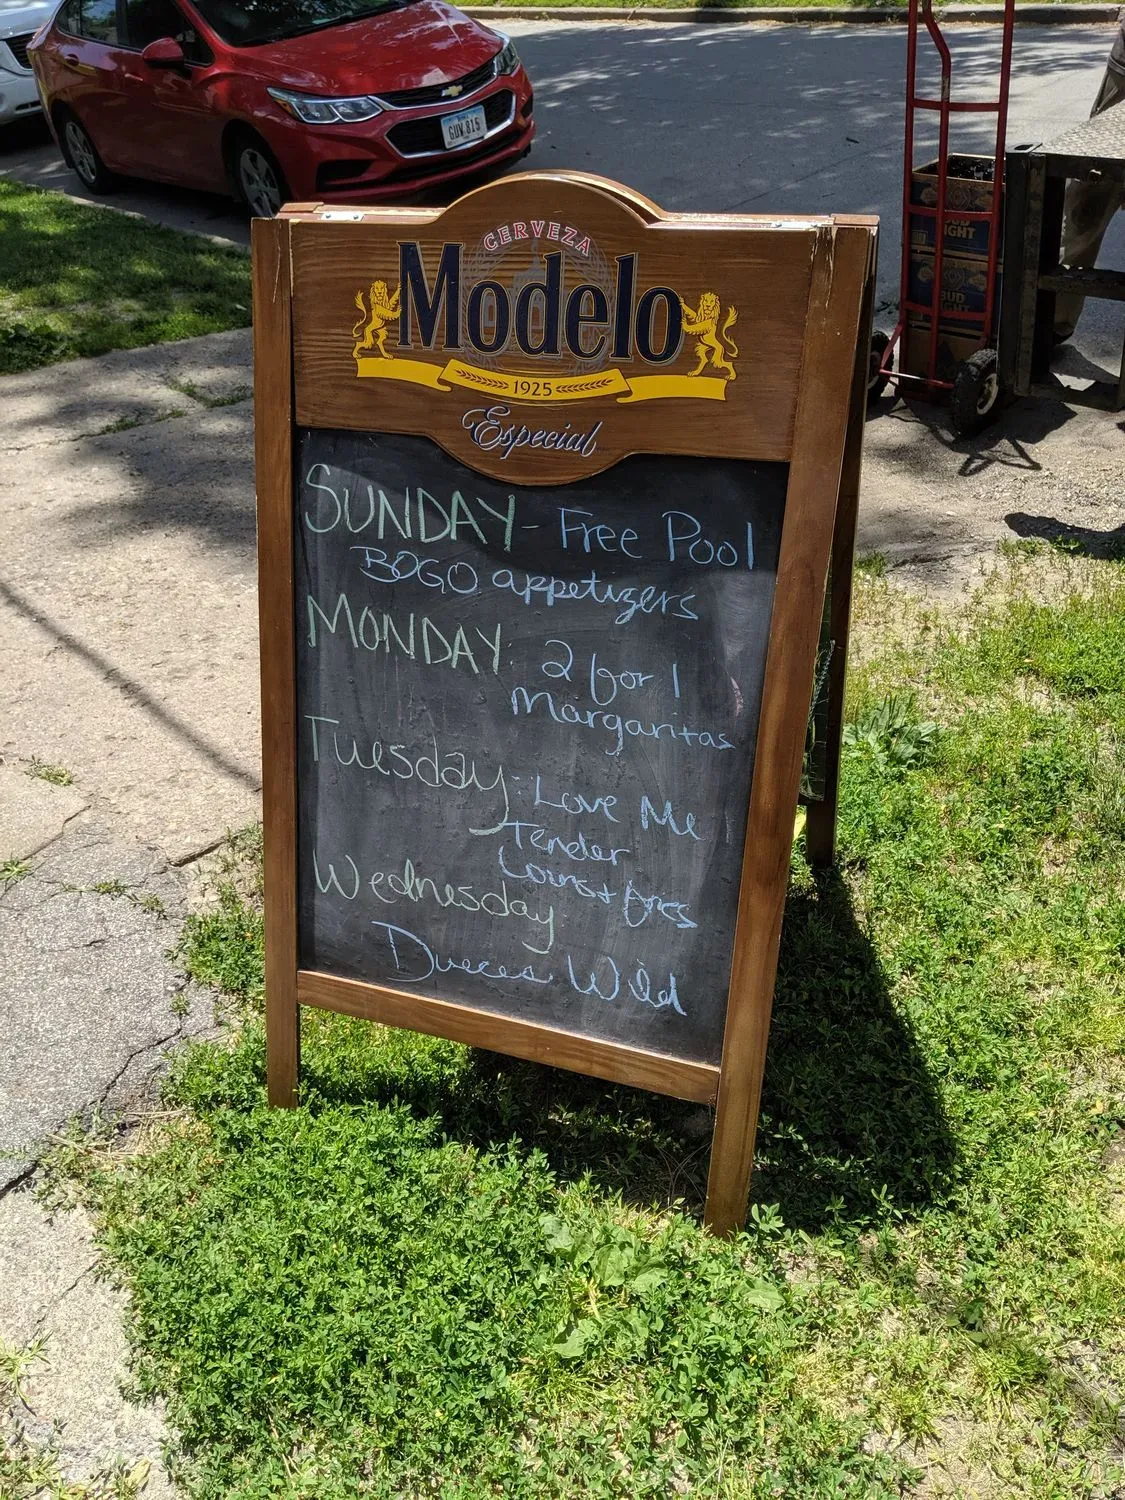 CERVEZA
Modelo
1925
Especial
SUNDAY - Free Pool
BOGO appetizers
MONDAY: 2 for 1
Margaritas
Tuesday: Love Me
Tender
Loins + fries
Wednesday
Dueces Wild
GUW 815
BUD
LIGHT
BUD
LIGHT